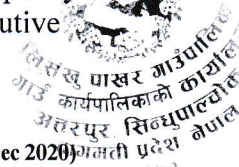 utive
लिसंखु पाखर गाउँपालिका
गाउँ कार्यपालिकाको कार्यालय
अत्तरपुर, सिन्धुपाल्चोक
ec 2020)
बागमती प्रदेश नेपाल